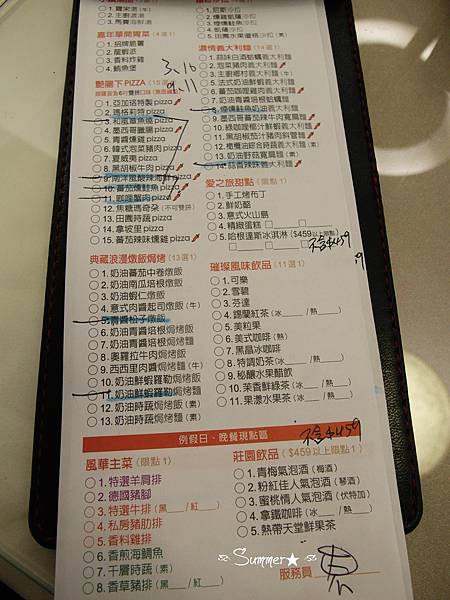 2. 主廚濃湯
3. 馬賽海鮮湯
嘉年華開胃菜（4選1）
1. 招牌脆薯
2. 龍蝦派
3. 香料炸雞
4. 鮪魚堡
艷陽下PIZZA（15選
3、16
9.11
1. 亞加洛特製pizza
2. 瑪格莉特pizza
3. 和風章魚燒pizza
4. 墨西哥臘腸pizza
5. 青醬燻雞pizza
6. 韓式泡菜豬肉pizza
7. 夏威夷pizza
8. 黑胡椒牛肉pizza
9. 南洋風酸辣海鮮pizza
10. 蕃茄燻鮭魚pizza
11. 咖哩蟹肉pizza
12. 焦糖瑪奇朵（不可雙拼）
13. 田園時蔬pizza
14. 拿坡里pizza
15. 蕃茄辣味燻雞pizza
典藏浪漫燉飯焗烤（13選1）
1. 奶油蕃茄中卷燉飯
2. 奶油南瓜培根燉飯
3. 奶油蝦仁燉飯
4. 意式肉醬起司燉飯（牛）
5. 青醬松子燉飯
6. 奶油青醬培根焗烤飯
7. 奶油青醬培根焗烤麵
8. 奧羅拉牛肉焗烤飯
9. 西西里肉醬焗烤麵（牛）
10. 奶油鮮蝦羅勒焗烤飯
11. 奶油鮮蝦羅勒焗烤麵
12. 奶油時蔬焗烤飯（素）
13. 奶油時蔬焗烤麵（素）
1. 尼斯沙拉
2. 燻雞凱薩沙拉
3. 煙燻鮭魚沙拉
4. 凱薩沙拉
5. 田園水果優格沙拉（素）
濃情義大利麵（14選1）
1. 蒜味白酒蛤蠣義大利麵
2. 泡菜豬肉義大利麵
3. 主廚鄉村義大利麵（牛）
4. 法式奶油鮮蝦義大利麵
5. 奶油燻雞義大利麵
6. 蕃茄咖哩雞肉義大利麵
7. 奶油青醬培根蛤蠣麵
8. 煙燻鮭魚奶油義大利麵
9. 墨西哥蕃茄辣牛肉寬扁麵
10. 綠咖哩椰汁鮮蝦義大利麵
11. 黑胡椒茄汁豬肉斜管麵
12. 橄欖油綜合時蔬義大利麵（素）
13. 奶油野菇寬扁麵（素）
14. 蒜香辣味義大利麵
愛之旅甜點（限點1）
1. 手工烤布丁
2. 鮮奶酪
3. 意式火山島
4. 精緻蛋糕
5. 哈根達斯冰淇淋（$459以上限點）
不含$459
璀璨風味飲品（11選1）
1. 可樂
2. 雪碧
3. 芬達
4. 錫蘭紅茶（冰___/熱___）
5. 美粒果
6. 美式咖啡（熱）
7. 黑晶冰咖啡
8. 特調奶茶（冰___/熱___）
9. 秘釀水果醋飲
10. 茉香鮮綠茶（冰___/熱___）
11. 果漾水果茶（冰___/熱___）
不含$459
例假日、晚餐現點區
風華主菜（限點1）
1. 特選羊肩排
2. 德國豬腳
3. 特選牛排（黑___/紅___）
4. 私房豬肋排
5. 香料雞排
6. 香煎海鯛魚
7. 千層時蔬（素）
8. 香草豬排（黑___/紅___）
莊園飲品（$459以上限點1）
1. 青梅氣泡酒（梅酒）
2. 粉紅佳人氣泡酒（琴酒）
3. 蜜桃情人氣泡酒（伏特加）
4. 拿鐵咖啡（冰___/熱___）
5. 熱帶天堂鮮果茶
Summer★
服務員